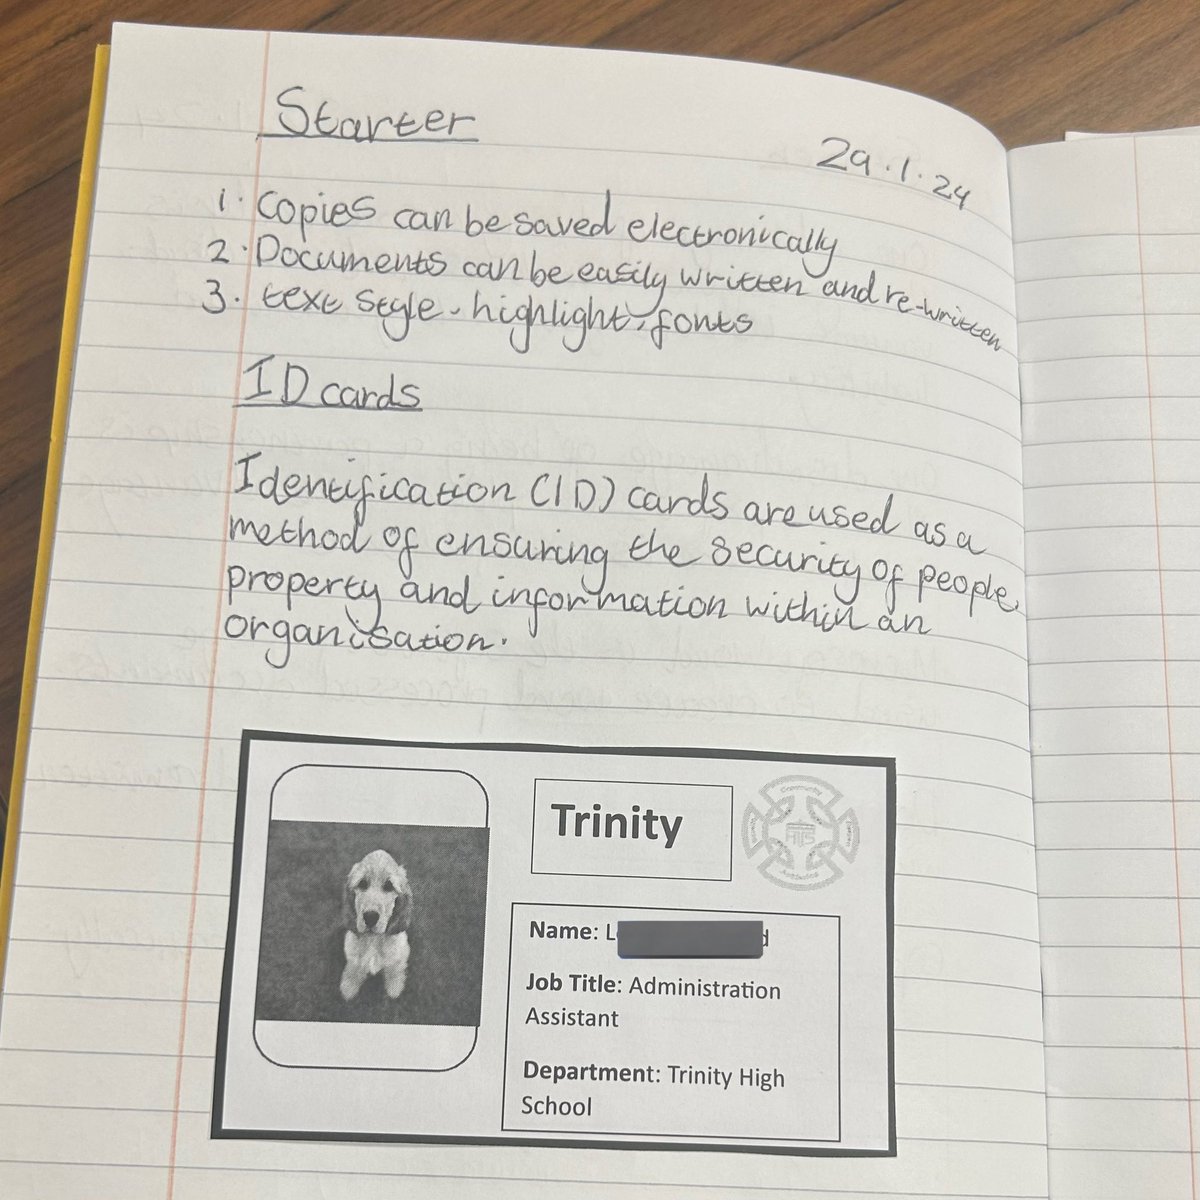 Starter
29.1.24
1. Copies can be saved electronically
2. Documents can be easily written and re-written
3. text style, highlight, fonts
ID cards
Identification (ID) cards are used as a
method of ensuring the security of people,
property and information within an
organisation.
Trinity
Name: L d
Job Title: Administration
Assistant
Department: Trinity High
School